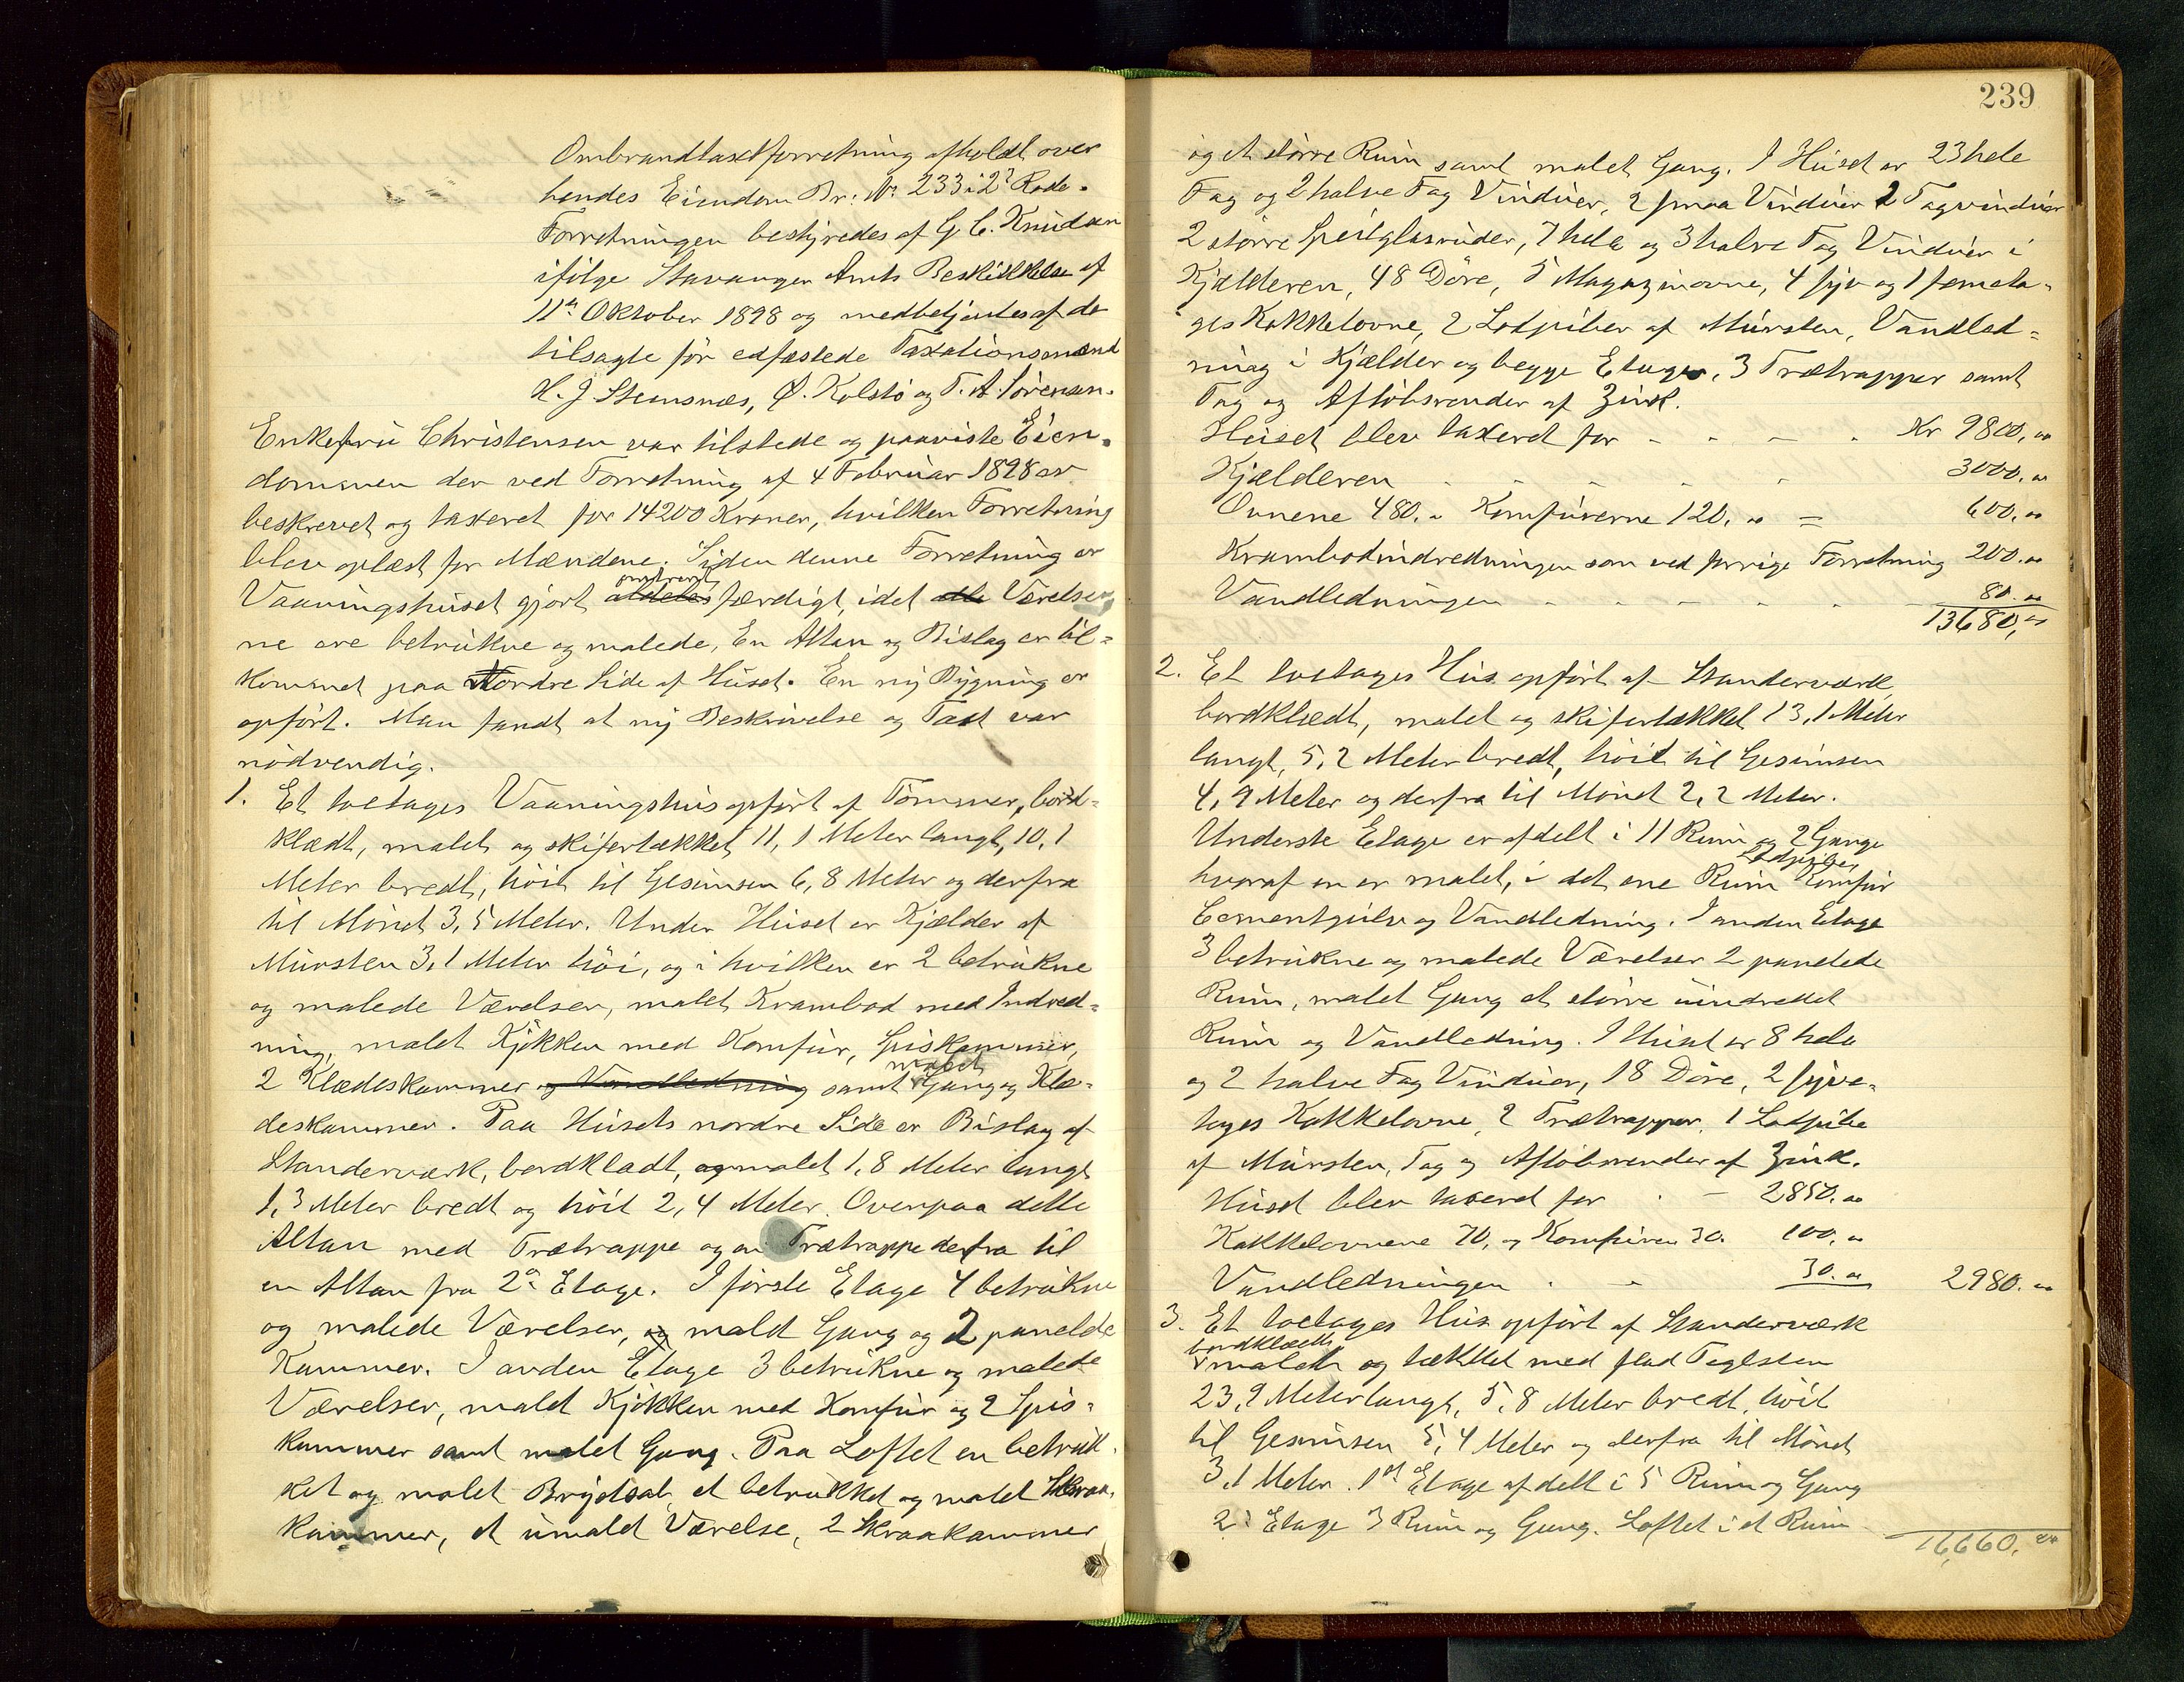 Ombrandtaxtforretning afholdt over
hendes Eiendom Br: No 233 i 2den Rode.
Forretningen bestyredes af G. C. Knudsen
ifölge Stavanger Amts Beskikkelse af
11te Oktober 1898 og medbetjentes af de
tilsagte för edfæstede Taxationsmænd
H. J. Stemsnæs, Ø. Kolstö og T. A. Sörensen.
Enkefru Christensen var tilstede og paaviste Eien-
dommen der ved Forretning af 4 Februar 1898 er
beskrevet og taxeret for 14200 Kroner, hvilken Forretning
blev oplæst for Mændene. Siden denne Forretning er
Vaaningshuset gjort færdigt, idet Værelser
ne ere betrukne og malede, En Altan og Bislag er til-
kommet paa Nordre Side af Huset. En ny Bygning er
opfört. Man fandt at ny Beskrivelse og Taxt var
nödvendig.
1. Et toetages Vaaningshus opfört af Tömmer, bord-
klædt, malet og skifertækket 11,1 Meter langt, 10,1
Meter bredt, höit til Gesimsen 6,8 Meter og derfra
til Mönet 3,5 Meter. Under Huset er Kjælder af
Mursten 3,1 Meter höi, og i hvilken er 2 betrukne
og malede Værelser, malet Krambod med Indred-
ning, malet Kjökken med Komfur, Spiskammer,
2 Klædeskammer og Vandledning samt malet Gang og Klæ-
deskammer. Paa Husets nordre Side er Bislag af
Standerværk, bordklædt, og malet 1,8 Meter langt
1,3 Meter bredt og höit 2,4 Meter. Ovenpaa dette
Altan med Trætrappe og en Trætrappe derfra til
en Altan fra 2den Etage. I förste Etage 4 betrukne
og malede Værelser, og malet Gang og 2 panelede
Kammer. I anden Etage 3 betrukne og malede
Værelser, malet Kjökken med Komfur og 2 Spis-
kammer samt malet Gang. Paa Loftet en betruk-
ket og malet Brydsal, et betrukket og malet Skraa-
kammer, et umalet Værelse, 2 Skraakammer
239
og et större Rum samt malet Gang. I Huset er 23 hele
Fag og 2 halve Fag Vinduer, 2 smaa Vinduer 2 Tagvinduer
2 större Speilglasruder, 7 hele og 3 halve Fag Vinduer i
Kjælderen, 48 Döre, 5 Magazinovne, 4 tyv og 1 femeta-
ges Kakkelovne, 2 Lodpiber af Mursten, Vandled-
ning i Kjælder og begge Etager, 3 Trætrapper samt
Tag og Aflöbsrender af Zink.
Huset blev taxeret for - - - - Kr 9800,00
Kjælderen - - - - - 3000,00
Ovnene 480,- Komfurerne 120,00 = 600,00
Krambodindredningen som ved forrige Forretning 200.00
Vandledningen - - - - - 80.00
13680,00
2. Et toetages Hus opfört af Standerværk,
bordklædt, malet og skifertækket 13,1 Meter
langt, 5,2 Meter bredt, höit til Gesimsen
4,9 Meter og derfra til Mönet 2,2 Meter.
Underste Etage er afdelt i 11 Rum og 2 Gange
hvoraf en er malet, i det ene Rum Lodpibe, Komfur
Cementgulv og Vandledning. I anden Etage
3 betrukne og malede Værelser 2 panelede
Rum, malet Gang et större uindredet
Rum og Vandledning. I Huset er 8 hele
og 2 halve Fag Vinduer, 18 Döre, 2 tyve-
tages Kakkelovne, 2 Trætrapper, 1 Lodpibe
af Mursten, Tag og Aflöbsrender af Zink.
Huset blev taxeret for - - 2850.00
Kakkelovnene 70,- og Komfuren 30. 100,00
Vandledningen - - 30.00 2980.00
3. Et toetages Hus opfört af Standerværk
bordklædt
malet og tækket med flad Teglsten
23,9 Meter langt, 5,8 Meter bredt, höit
til Gesimsen 5,4 Meter og derfra til Mönet
3,1 Meter. 1st Etage afdelt i 5 Rum og Gang
2d Etage 3 Rum og Gang. Loftet i et Rum
16,660.00